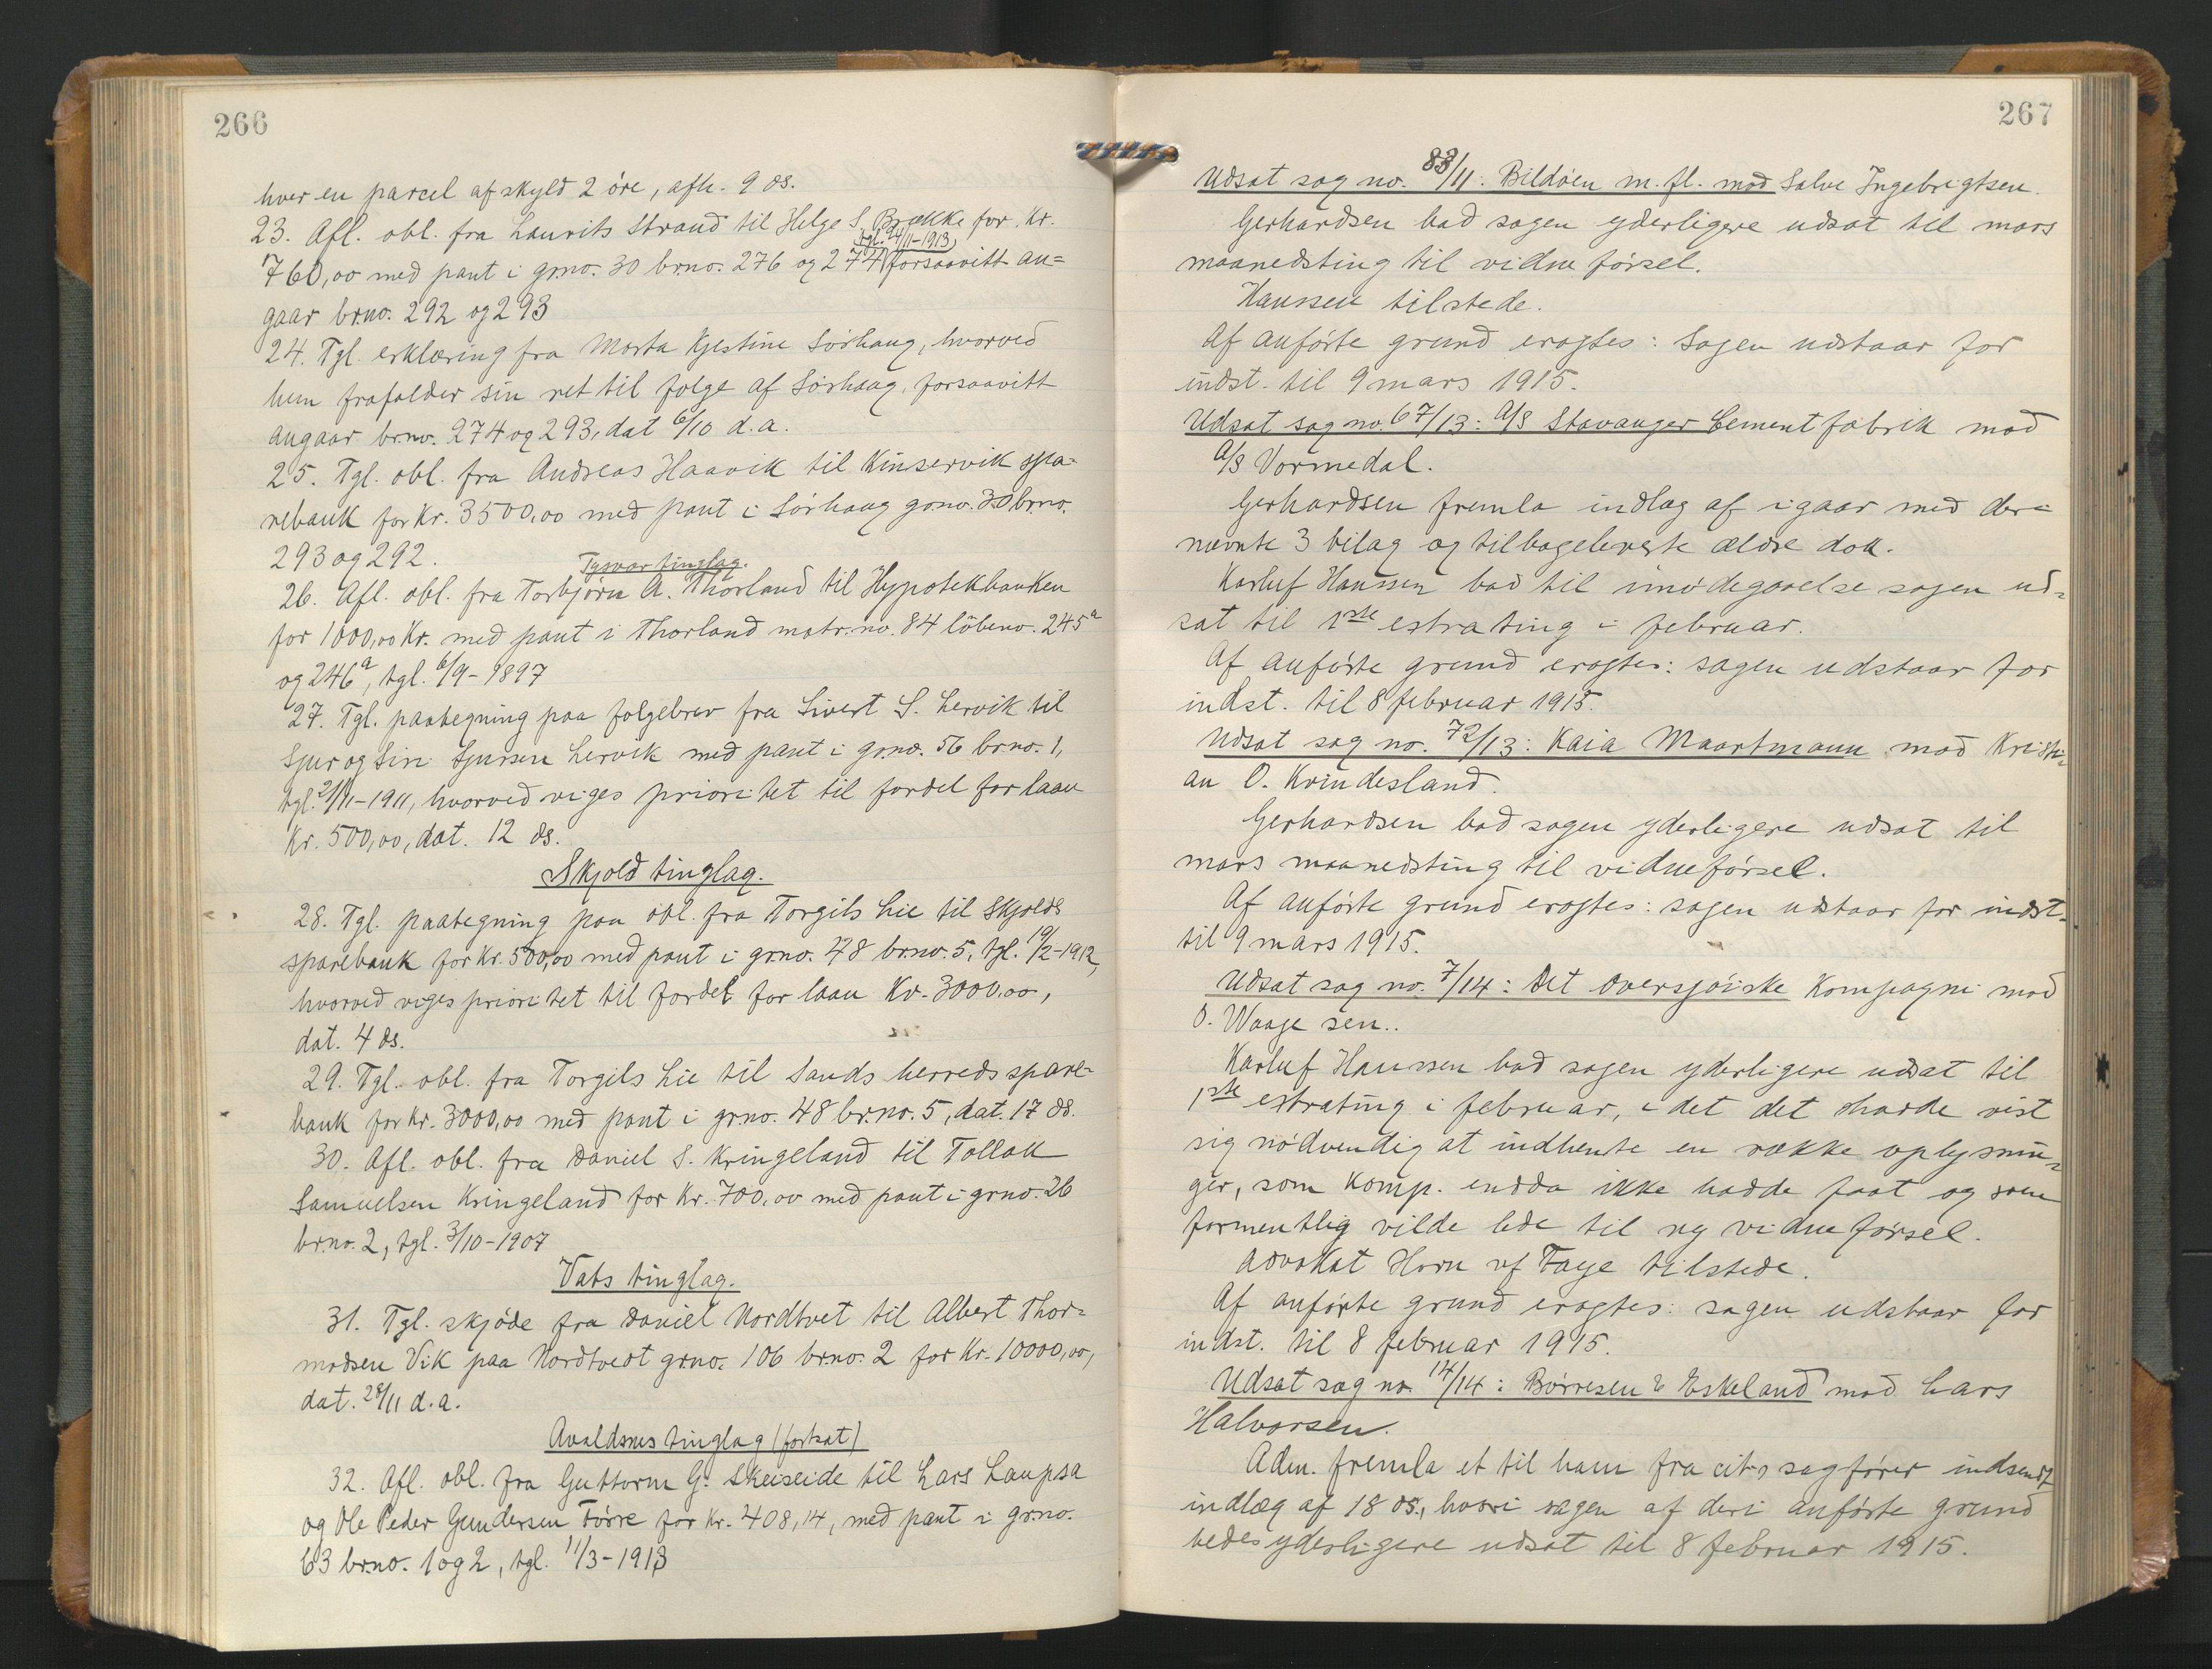 266
hver en parcel af skyld 2 øre, afh. 9 ds.
23. Afl. obl. fra Laurits Strand til Helge S. Brække for Kr.
tgl. 4/11-1913,
760,00 med pant i grno. 30 brno. 276 og 274 forsaavitt an=
gaar brno. 292 og 293
24. Tgl. erklæring fra Marta Kjestine Sørhaug, hvorved
hun frafalder sin ret til følge af Sørhaug, forsaavitt
angaar brno. 274 og 293, dat 6/10 d.a.
25. Tgl. obl. fra Andreas Haavik til Kinservik spa=
rebank for Kr. 3500,00 med pant i Sørhaug grno. 30 brno.
293 og 292.
Tysvær tinglag.
26. Afl. obl. fra Torbjørn A. Thorland til Hypotekbanken
for 1000,00 Kr. med pant i Thorland matr. no. 84 löbeno. 245a
og 246a, tgl. 6/9-1897
27. Tgl. paategning paa følgebrev fra Sivert S. Lervik til
Sjur og Siri Sjursen Lervik med pant i grno. 56 brno. 1,
tgl. 2/11-1911, hvorved viges prioritet til fordel for laan
Kr. 500,00, dat. 12 ds.
Skjold tinglag.
28. Tgl. paategning paa obl. fra Torgils Lie til Skjolds
sparebank for Kr. 500,00 med pant i grno. 48 brno. 5, tgl. 19/2-1912,
hvorved viges prioritet til fordel for laan Kr. 3000,00,
dat. 4 ds.
29. Tgl. obl. fra Torgils Lie til Sands herreds spare-
bank for Kr. 3000,00 med pant i grno. 48 brno. 5, dat. 17 ds.
30. Afl. obl. fra Daniel S. Kringeland til Tollak
Samuelsen Kringeland for Kr. 700,00 med pant i grno. 26
brno. 2, tgl. 3/10-1907
Vats tinglag.
31. Tgl. skjøde fra Daniel Nordtvet til Albert Thor=
modsen Vik paa Nordtvedt grno. 106 brno. 2 for Kr. 10000,00,
dat. 28/11 d.a.
Avaldsnes tinglag (fortsat)
32. Afl. obl. fra Guttorm G. Skeiseide til Lars Laupsa
og Ole Peder Gundersen Førre for Kr. 408,14, med pant i grno.
63 brno. 1 og 2, tgl. 11/3-1913
267
Udsat sag no. 83/11: Bildøen m. fl. mod Salve Ingebrigtsen.
Gerhardsen bad sagen yderligere udsat til mars
maanedsting til vidneførsel.
Hanssen tilstede.
Af anførte grund eragtes: Sagen udstaar for
indst. til 9 mars 1915.
Udsat sag no. 67/13: A/S Stavanger Cementfabrik mod
A/S Vormedal.
Gerhardsen fremla indlæg af igaar med deri
nævnte 3 bilag og tilbageleverte ældre dok.
Karluf Hanssen bad til imødegaaelse sagen ud=
sat til 1ste estrating i februar.
Af anførte grund eragtes: sagen udstaar for
indst. til 8 februar 1915.
Udsat sag no. 72/13: Kaia Maartmann mod Kristi=
an O. Krindesland.
Gerhardsen bad sagen yderligere udsat til
mars maanedsting til vidneførsel.
Af anførte grund eragtes: sagen udstaar for indst.
til 9 mars 1915.
Udsat sag no. 7/14: Det oversjøiske Kompagni mod
O. Waage sen..
Karluf Hanssen bad sagen yderligere udsat til
1ste estrating i februar, idet det hadde vist
sig nødvendig at indhente en række oplysnin=
ger, som Komp. endda ikke hadde faat og som
formentlig vilde lede til ny vidneførsel.
Advokat Horn vf Faye tilstede.
Af anførte grund eragtes: sagen udstaar for
indst. til 8 februar 1915.
Udsat sag no. 14/14: Børresen & Eskeland mod Lars
Halvorsen.
Adm. fremla et til ham fra cits sagfører indsendt
indlæg af 18 ds., hvori sagen af deri anførte grund
bedes yderligere udsat til 8 februar 1915.